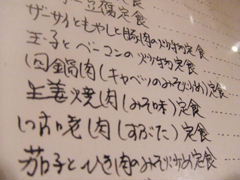 豆腐定食
ザーサイともやしと豚肉の炒め物定食
玉子とベーコンの炒め物定食
回鍋肉(キャベツのみそ炒め)定食
生姜焼肉(みそ味)定食
肉(すぶた)定食
茄子とひき肉のみそ炒め定食